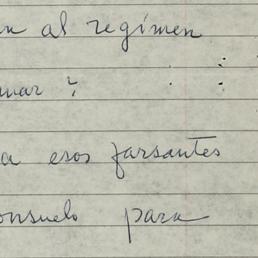 al regimen
?
a esos farsantes
onsuelo para